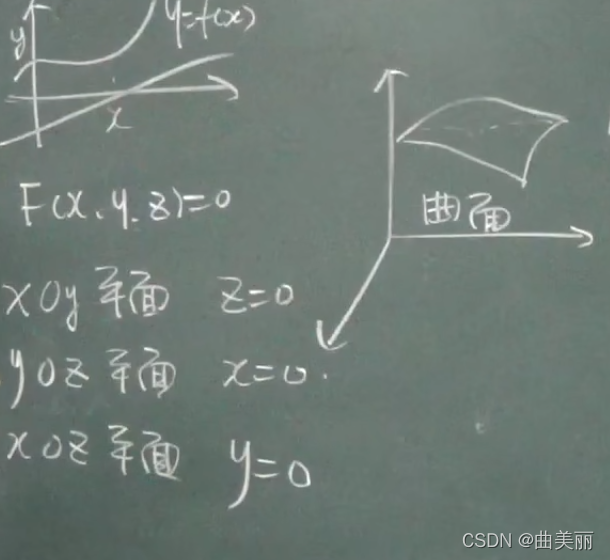 y
y=f(x)
x
F(x,y,z)=0
曲面
xoy平面 z=0
yoz平面 x=0.
xoz平面 y=0
CSDN @曲美丽